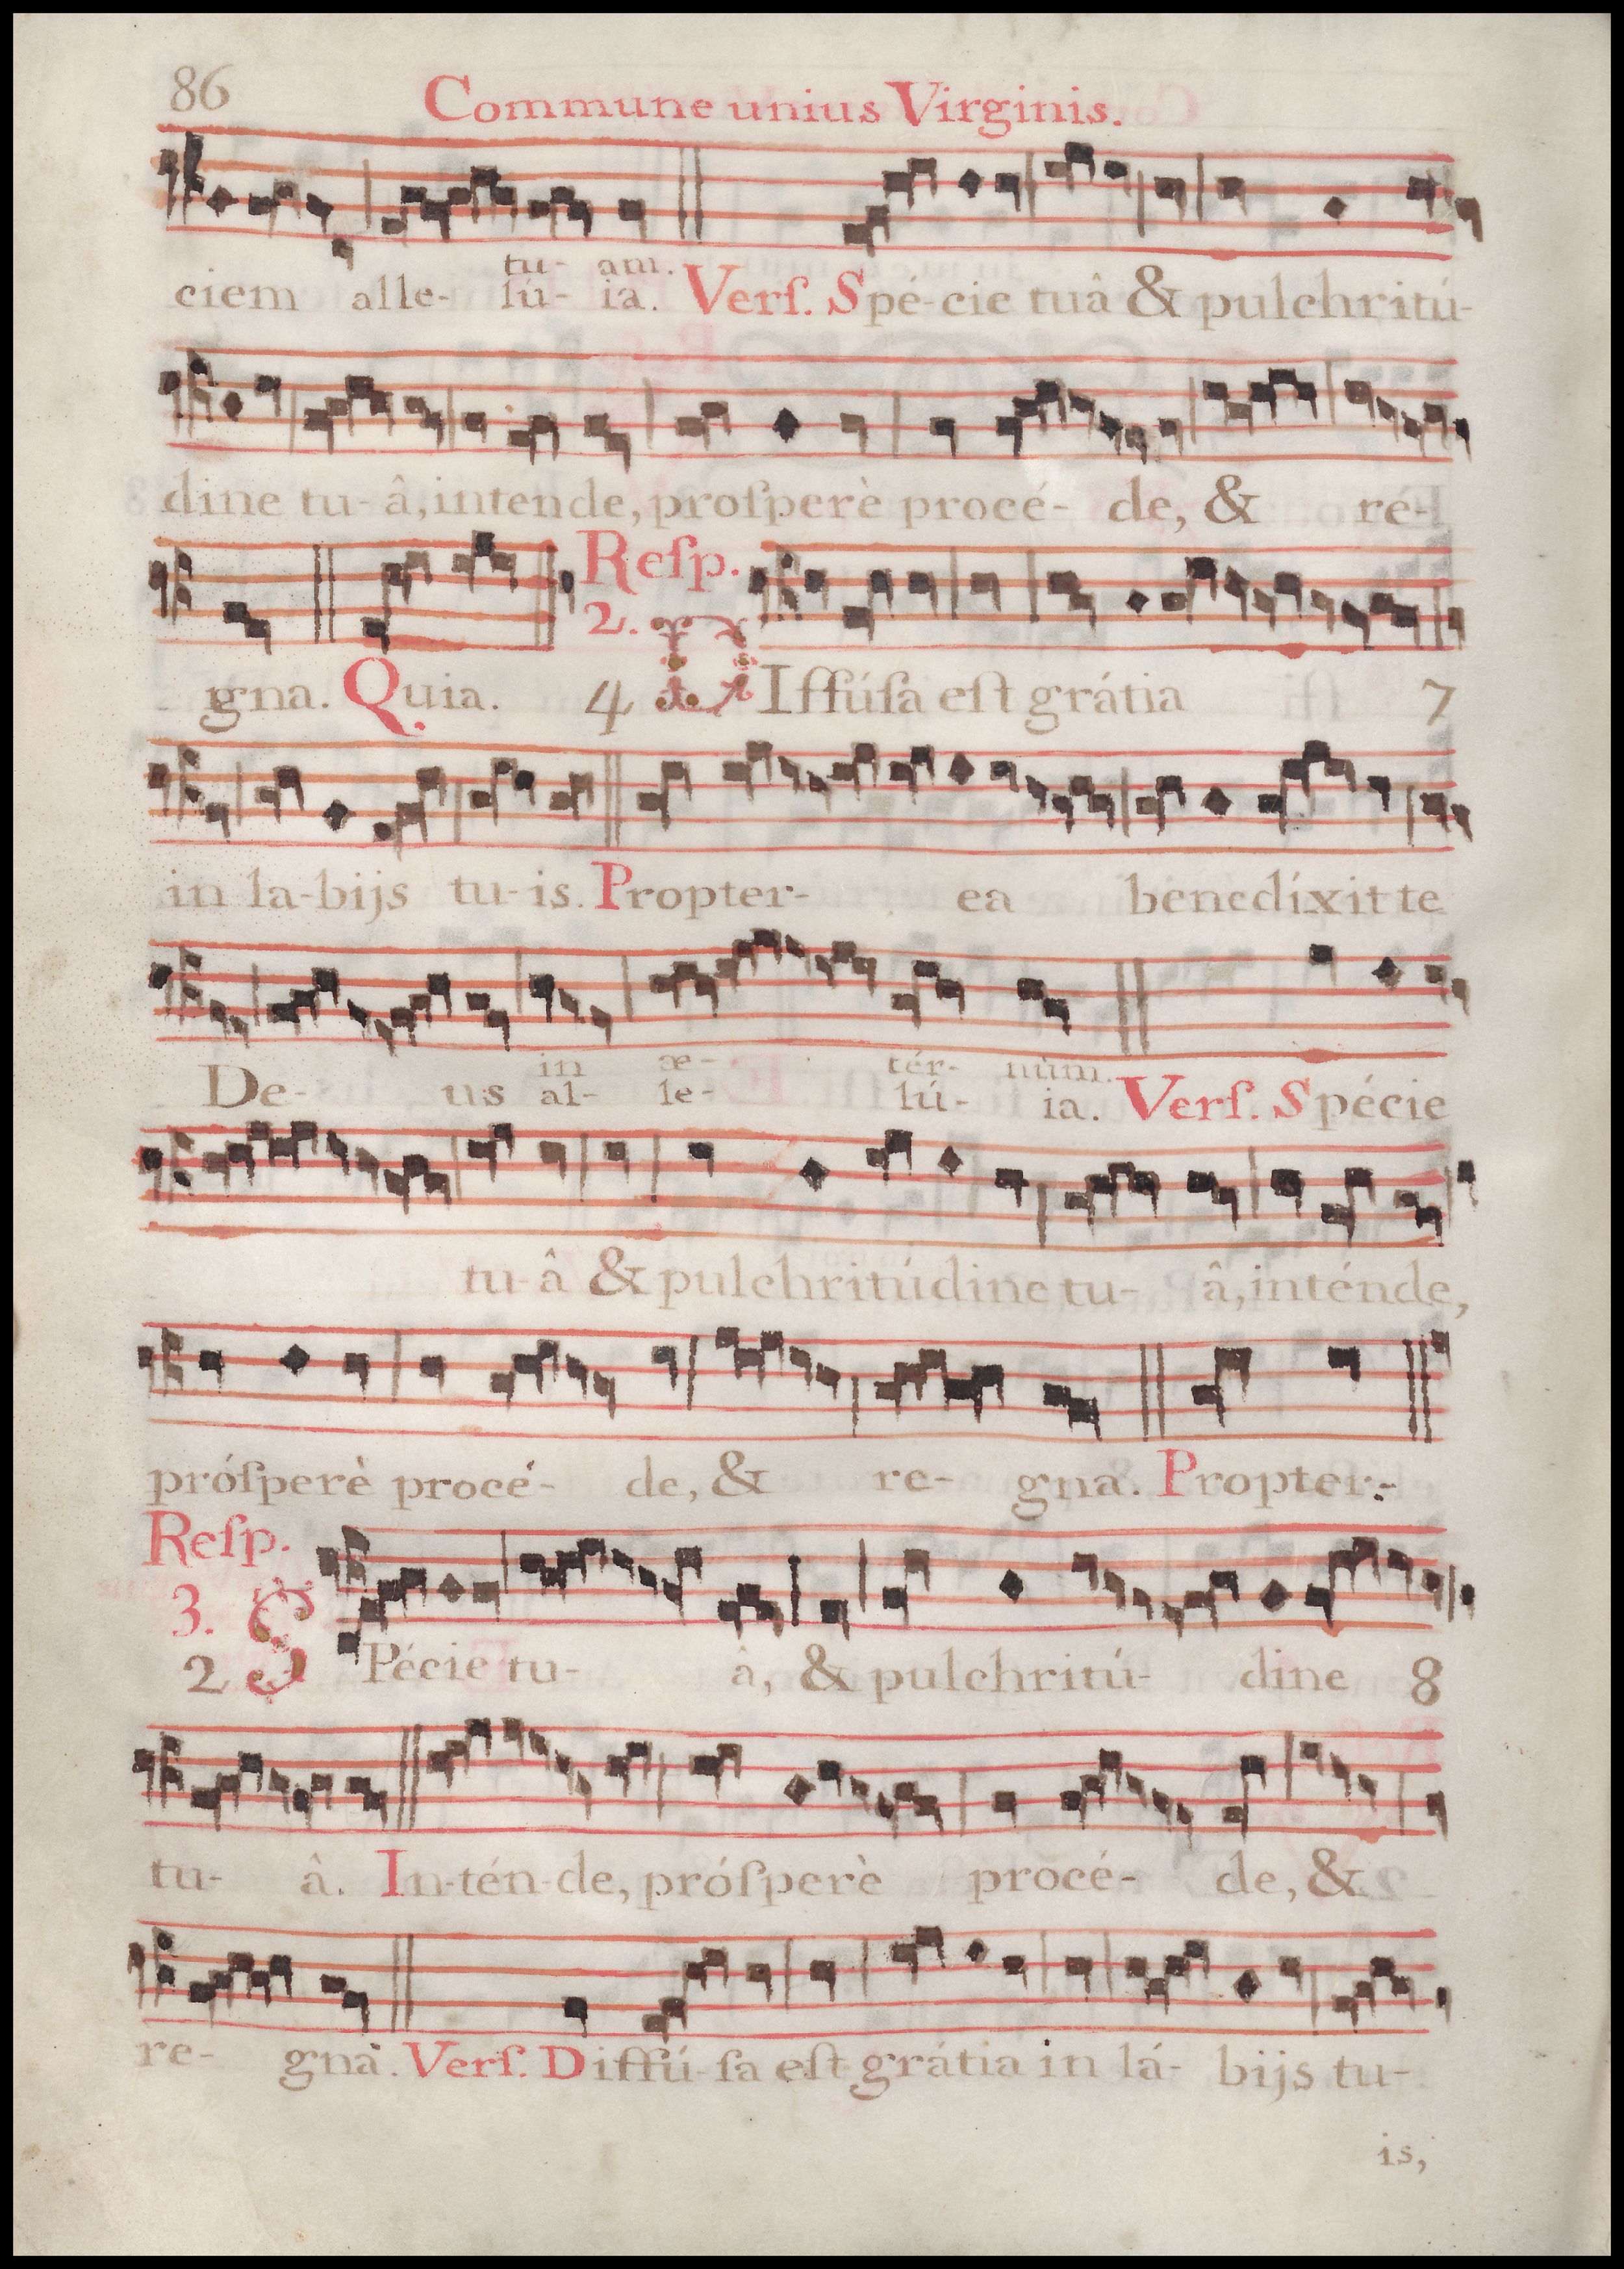 86
Commune unius Virginis.
tu- am.
ciem alle- lú- ia. Verſ. Spé-cie tuâ & pulchritú-
dine tu-â, intende, proſperè procé- de, & ré-
Reſp.
2.
gna. Quia. 4 DIffúſa eſt grátia 7
in la-bijs tu-is. Propter- ea benedíxit te
in æ- tér- num.
De- us al- le- lú- ia. Verſ. Spécie
tu-â & pulchritúdine tu- â, inténde,
próſperè procé- de, & re- gna. Propter-
Reſp.
3.
2 SPécie tu- â, & pulchritú- dine 8
tu- â. In-tén-de, próſperè procé- de, &
re- gna. Verſ. Diffú-ſa eſt grátia in lá- bijs tu-
is,